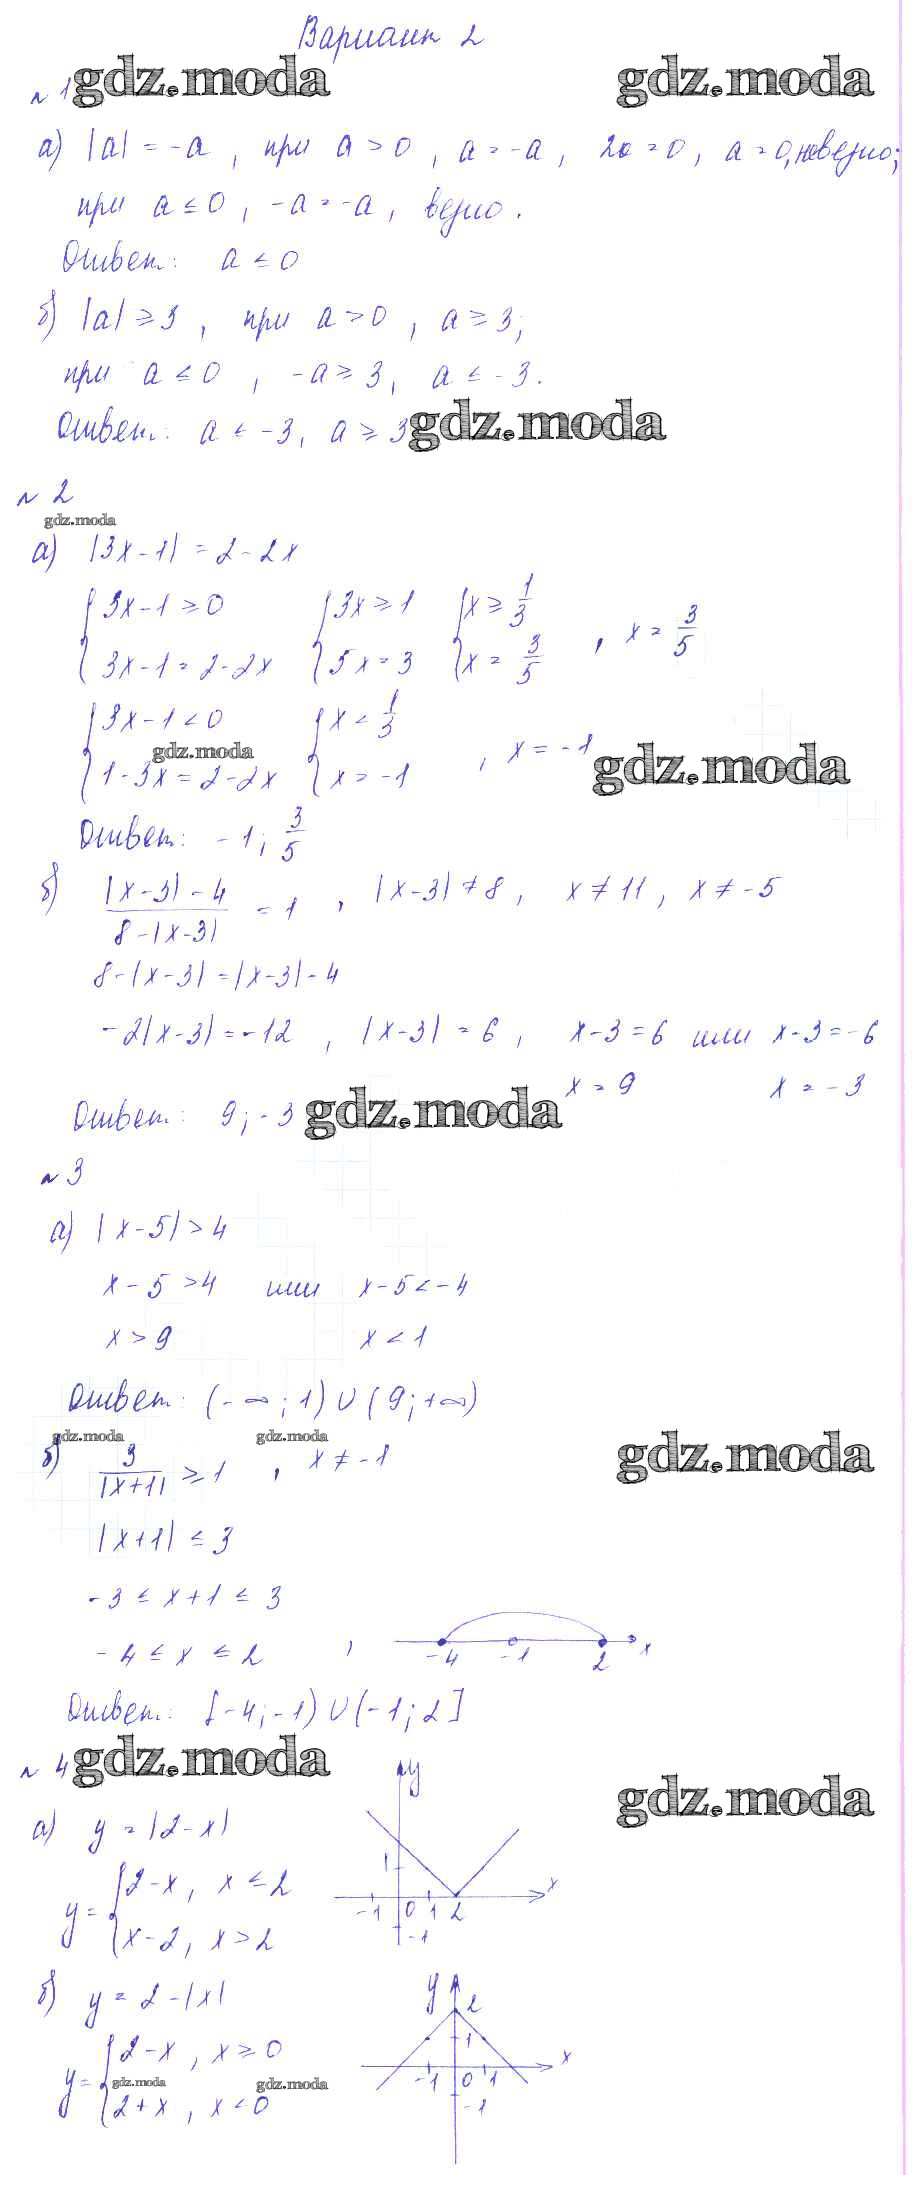 Вариант 2
gdz.moda gdz.moda
№ 1
а) |a| = -a, при a > 0, a = -a, 2a = 0, a = 0, неверно;
при a ≤ 0, -a = -a, верно.
Ответ: a ≤ 0
б) |a| ≥ 3, при a > 0, a ≥ 3;
при a ≤ 0, -a ≥ 3, a ≤ -3.
Ответ: a ≤ -3, a ≥ 3 gdz.moda
№ 2
gdz.moda
а) |3x-1| = 2-2x
{3x-1 ≥ 0 {3x ≥ 1 {x ≥ 1/3
{3x-1 = 2-2x {5x = 3 {x = 3/5, x = 3/5
{3x-1 < 0 {x < 1/3
gdz.moda , x = -1 gdz.moda
{1-3x = 2-2x {x = -1
Ответ: -1; 3/5
б) (|x-3|-4)/(8-|x-3|) = 1, |x-3| ≠ 8, x ≠ 11, x ≠ -5
8-|x-3| = |x-3|-4
-2|x-3| = -12, |x-3| = 6, x-3 = 6 или x-3 = -6
x = 9 x = -3
Ответ: 9; -3 gdz.moda
№ 3
а) |x-5| > 4
x-5 > 4 или x-5 < -4
x > 9 x < 1
Ответ: (-∞; 1) ∪ (9; +∞)
gdz.moda gdz.moda gdz.moda
б) 3/|x+1| ≥ 1, x ≠ -1
|x+1| ≤ 3
-3 ≤ x+1 ≤ 3
-4 ≤ x ≤ 2, -4 -1 2 x
Ответ: [-4; -1) ∪ (-1; 2]
№ 4 gdz.moda y
gdz.moda
а) y = |2-x|
1
y = {2-x, x ≤ 2 x
-1 0 1 2
{x-2, x > 2 -1
б) y = 2-|x| y 2
1
y = {2-x, x ≥ 0 x
gdz.moda gdz.moda -1 0 1
{2+x, x < 0 -1